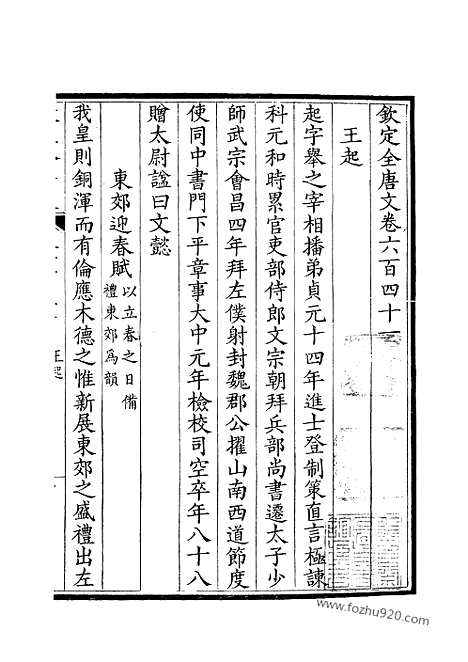 欽定全唐文卷六百四十一
王起
起字舉之宰相播弟貞元十四年進士登制策直言極諫
科元和時累官吏部侍郎文宗朝拜兵部尚書遷太子少
師武宗會昌四年拜左僕射封魏郡公擢山南西道節度
使同中書門下平章事大中元年檢校司空卒年八十八
贈太尉諡曰文懿
東郊迎春賦以立春之日備
禮東郊為韻
我皇則銅渾而有倫應木德之惟新展東郊之盛禮出左
王起
www.fozhu920.com